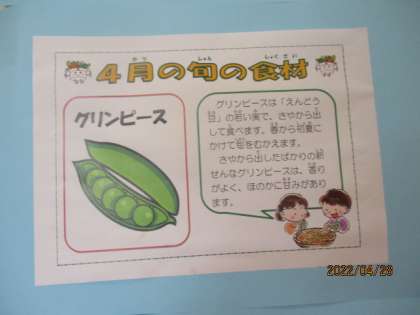 4月の旬の食材
グリンピース
グリンピースは「えんどう
豆」の若い実で、さやから出
して食べます。春から初夏に
かけて旬をむかえます。
さやから出したばかりの新
せんなグリンピースは、香り
がよく、ほのかに甘みがあり
ます。
2022/04/28